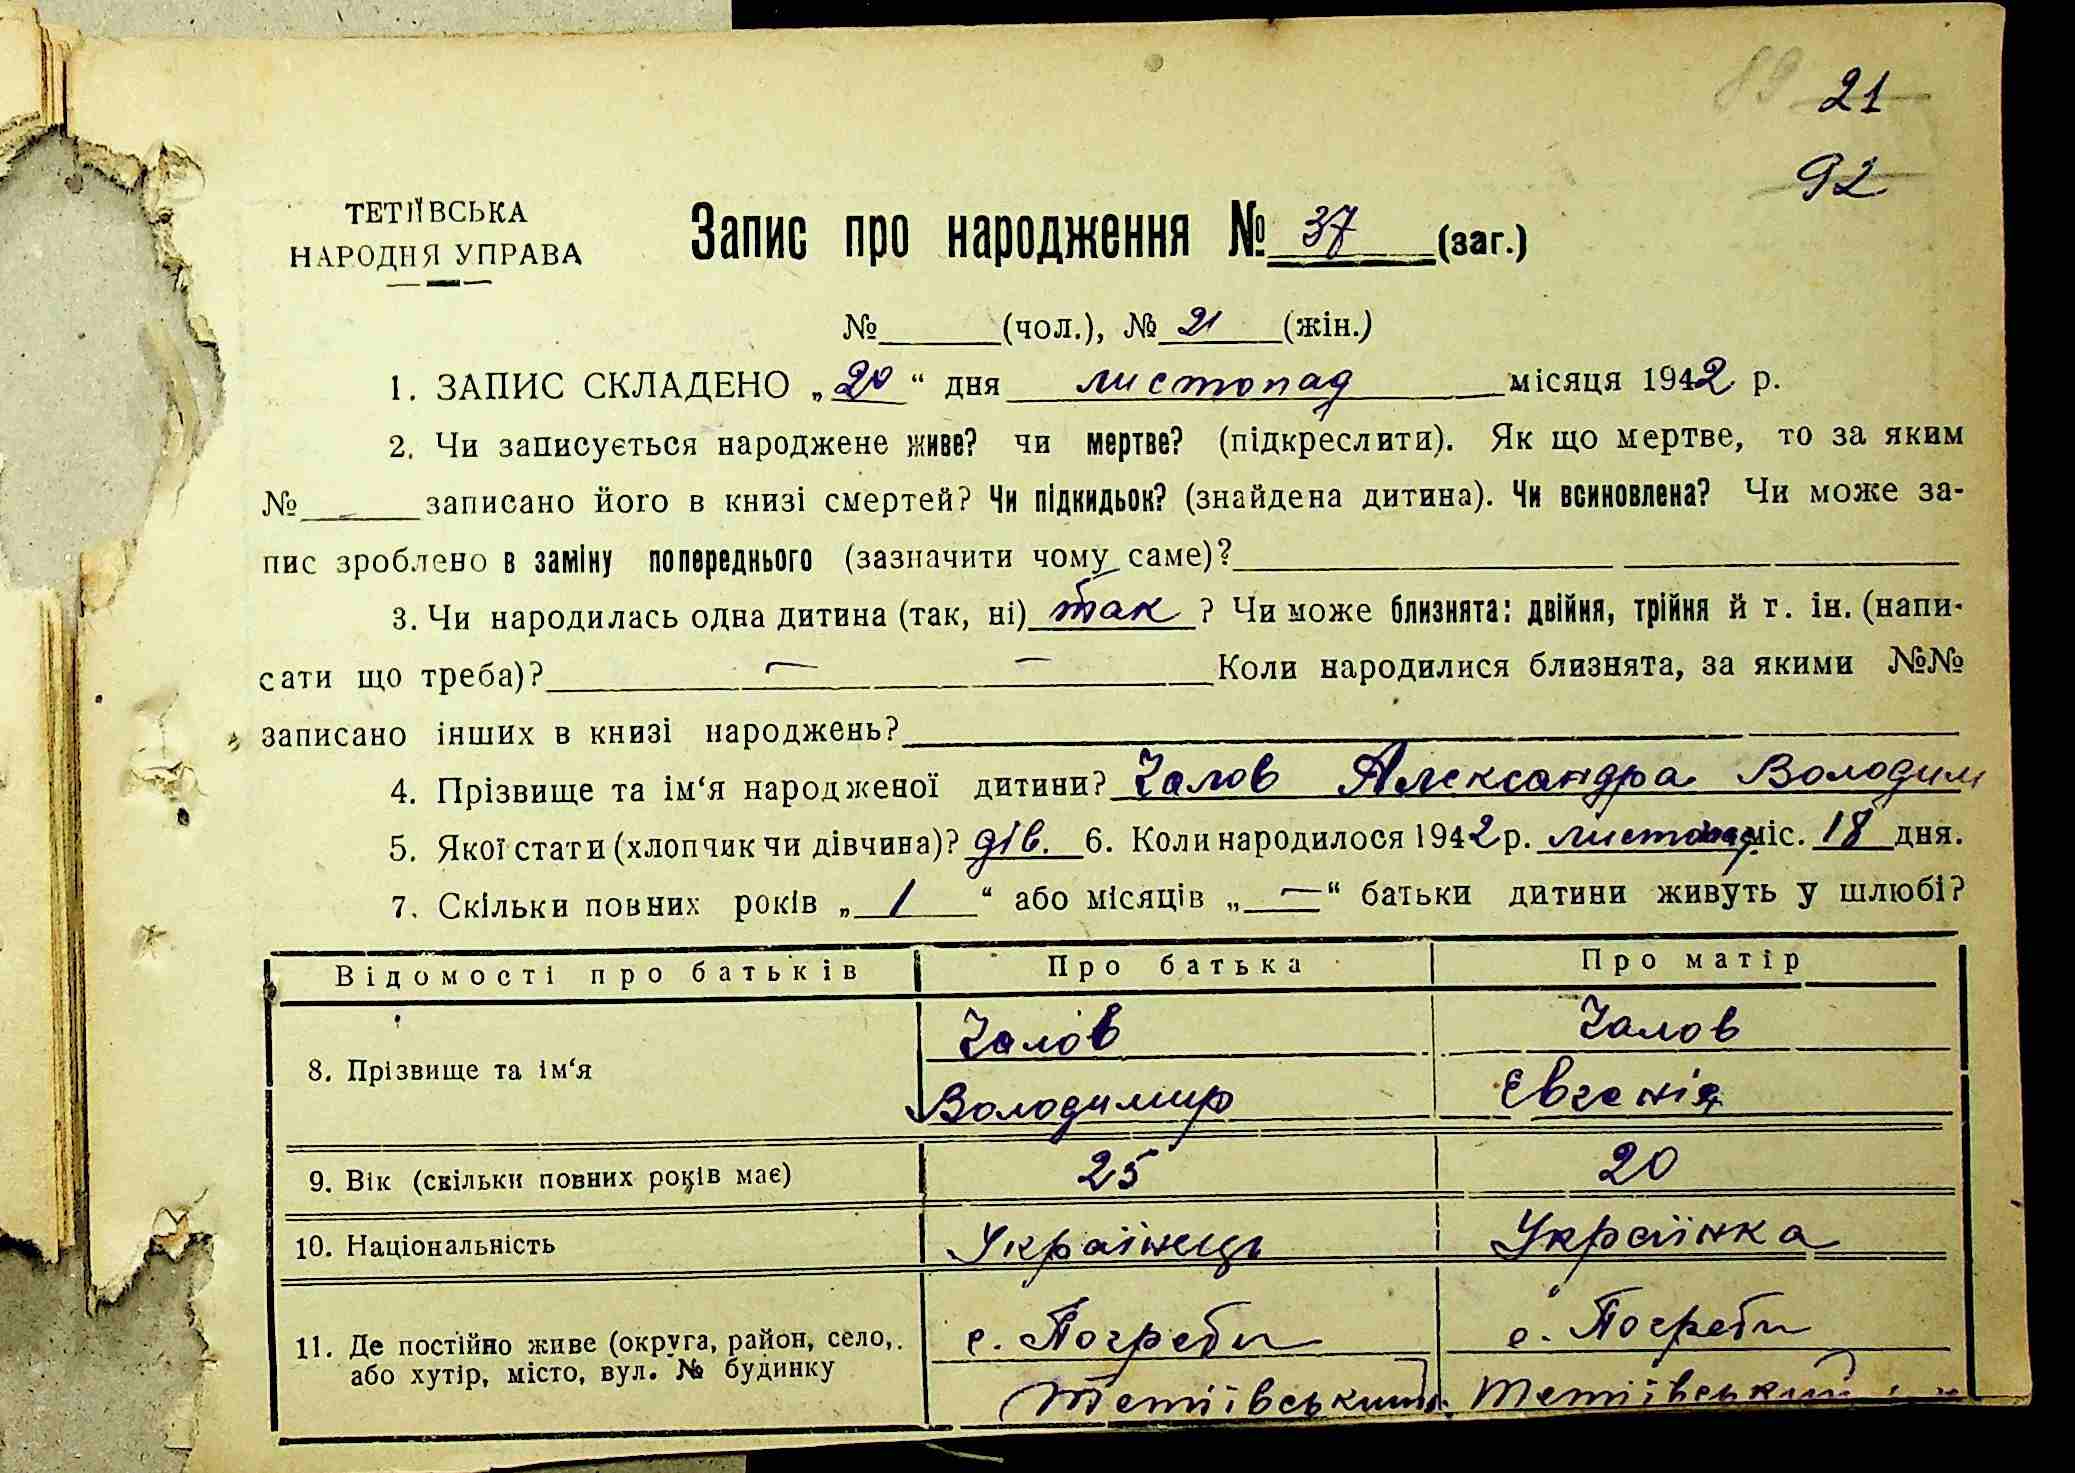 89 21
92
ТЕТІЇВСЬКА
НАРОДНЯ УПРАВА
Запис про народження № 37 (заг.)
№ (чол.), № 21 (жін.)
1. ЗАПИС СКЛАДЕНО „20“ дня листопад місяця 1942 р.
2. Чи записується народжене живе? чи мертве? (підкреслити). Як що мертве, то за яким
№ записано його в книзі смертей? Чи підкидьок? (знайдена дитина). Чи всиновлена? Чи може за-
пис зроблено в заміну попереднього (зазначити чому саме)?
3. Чи народилась одна дитина (так, ні) так ? Чи може близнята: двійня, трійня й т. ін. (напи-
сати що треба)? — — Коли народилися близнята, за якими №№
записано інших в книзі народжень?
4. Прізвище та ім‘я народженої дитини? Чалов Александра Володим
5. Якої стати (хлопчик чи дівчина)? дів. 6. Коли народилося 1942 р. листопад міс. 18 дня.
7. Скільки повних років „1“ або місяців „—“ батьки дитини живуть у шлюбі?
Відомості про батьків Про батька Про матір
8. Прізвище та ім‘я Чалов Чалов
Володимир Євгенія
9. Вік (скільки повних років має) 25 20
10. Національність Українець Українка
11. Де постійно живе (округа, район, село, с. Погреби с. Погреби
або хутір, місто, вул. № будинку Тетіївський Тетіївський